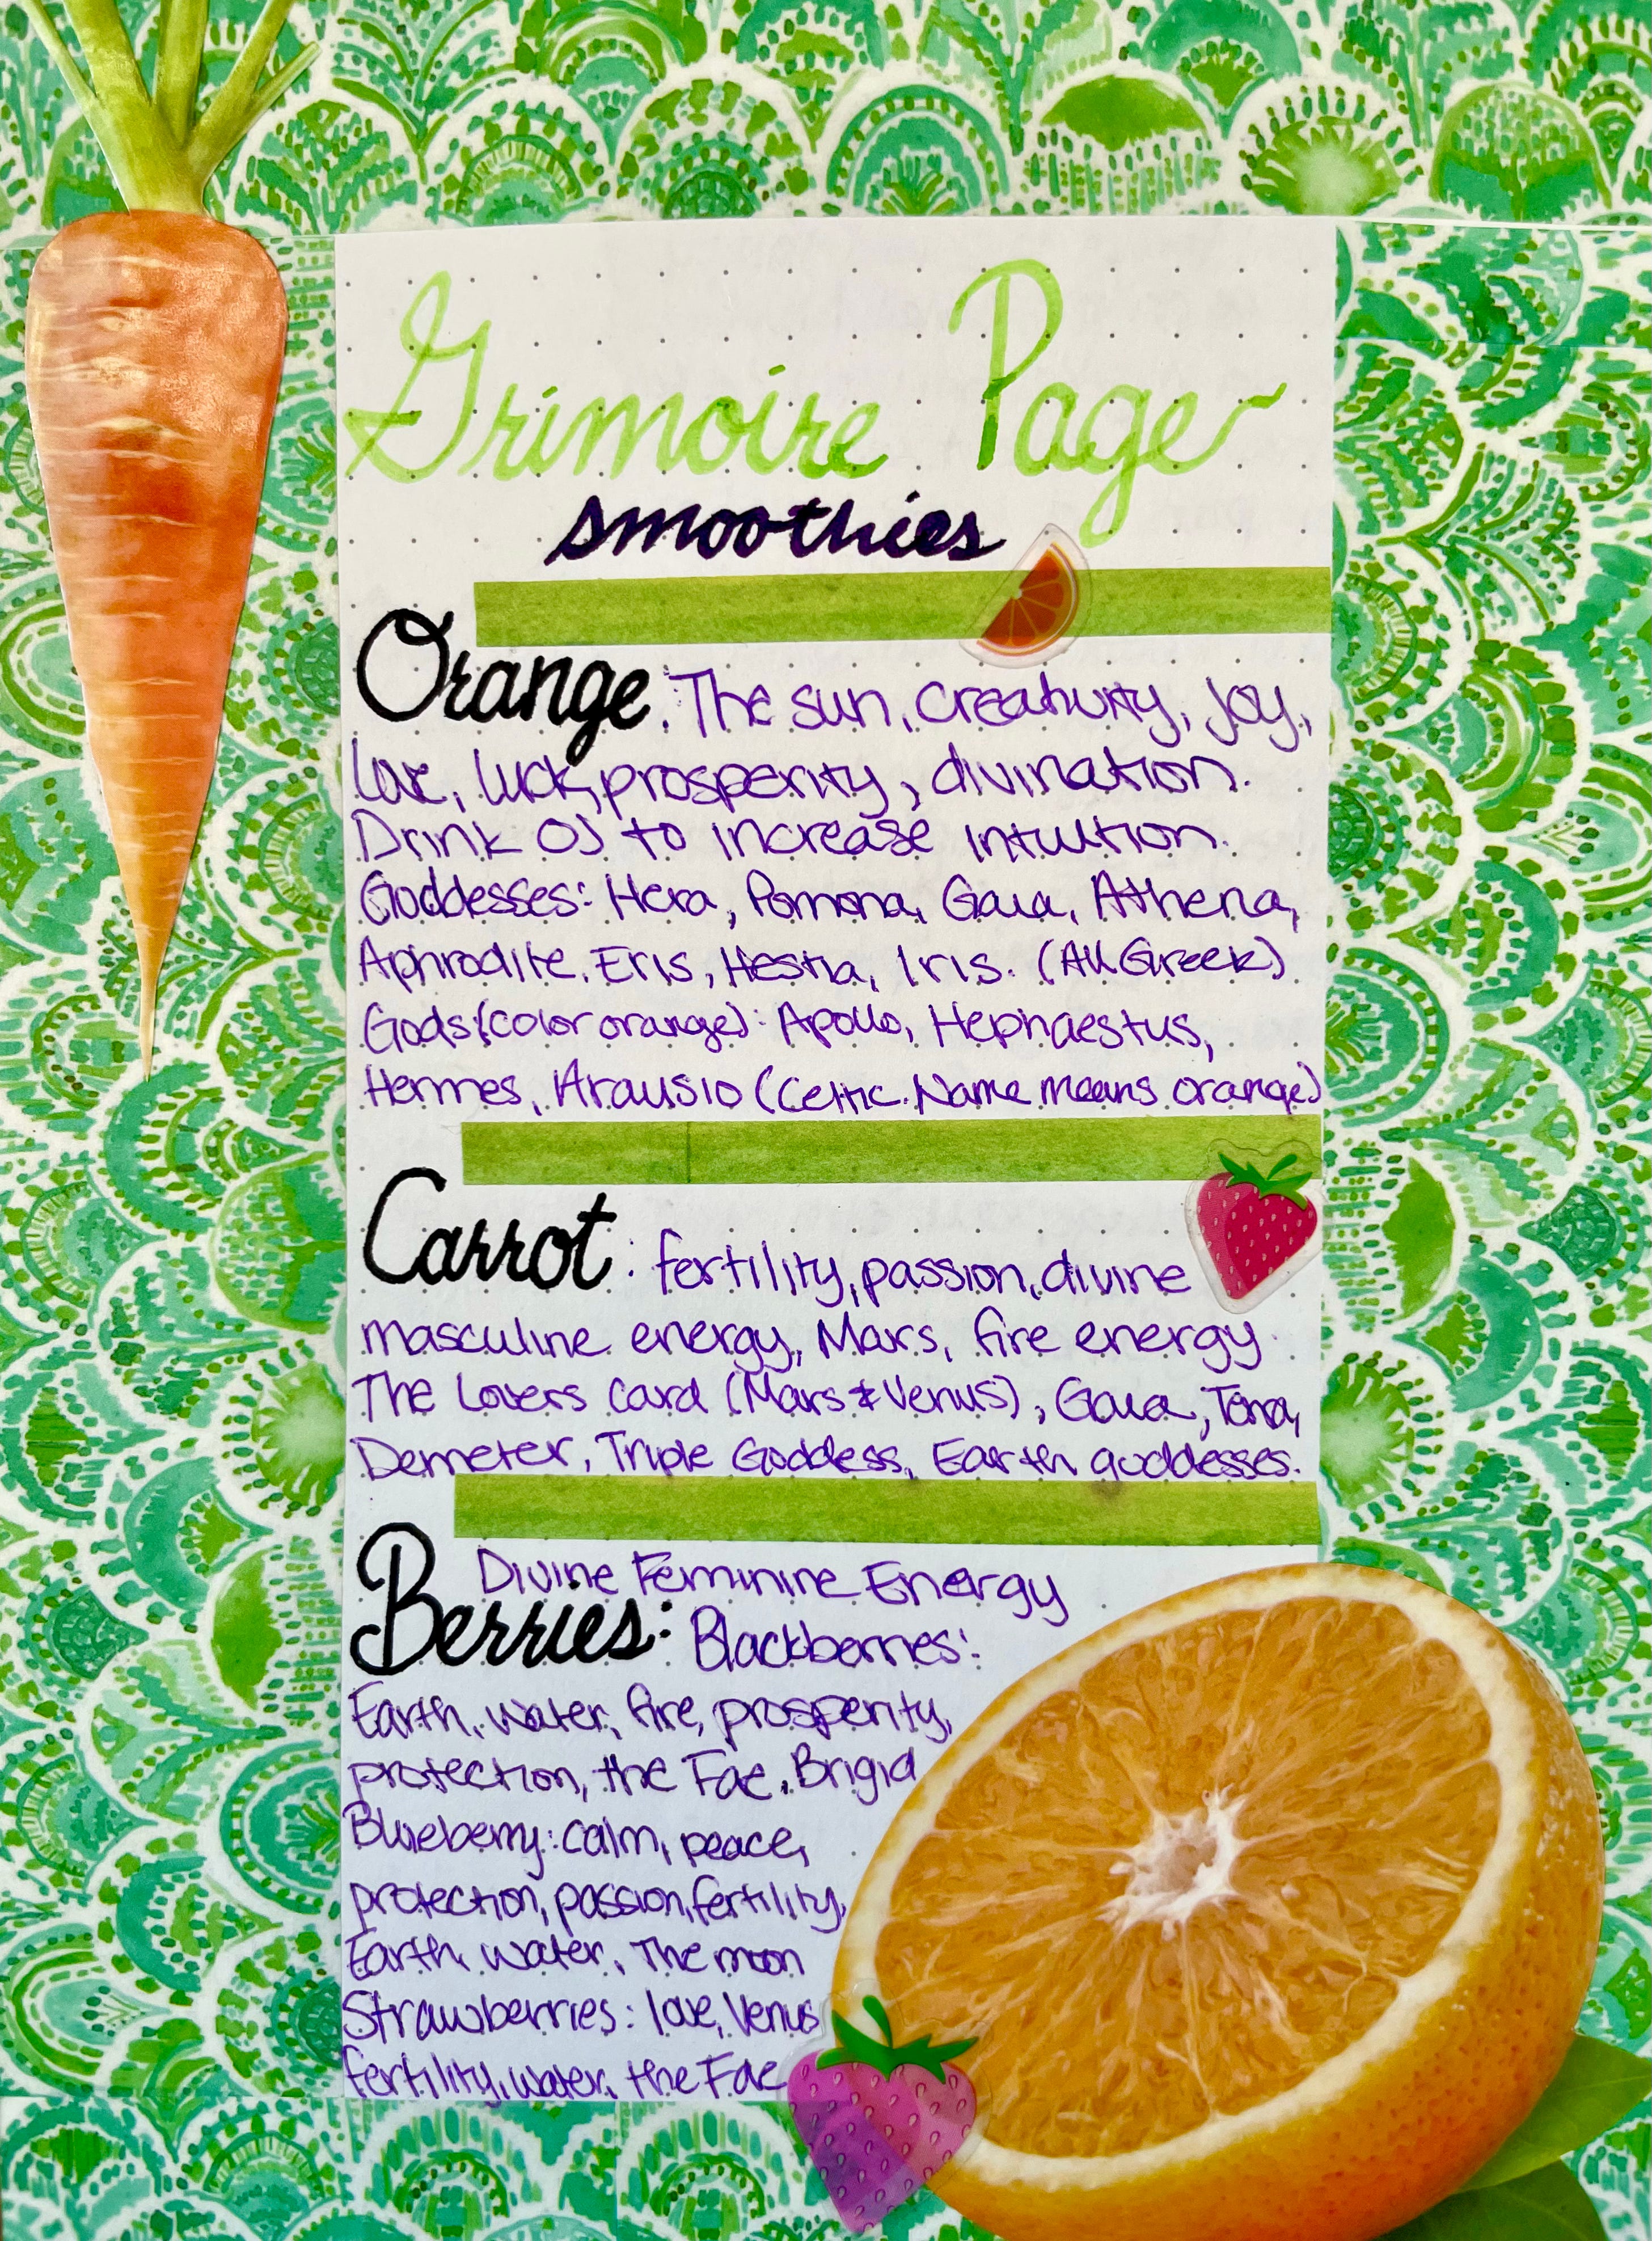 Grimoire Page
smoothies
Orange: The sun, creativity, joy,
love, luck, prosperity, divination.
Drink OJ to increase intuition.
Goddesses: Hera, Pomona, Gaia, Athena,
Aphrodite, Eris, Hestia, Iris. (All Greek)
Gods (color orange): Apollo, Hephaestus,
Hermes, Arausio (Celtic. Name means orange)
Carrot: fertility, passion, divine
masculine energy, Mars, fire energy
The Lovers card (Mars & Venus), Gaia, Tona,
Demeter, Triple Goddess, Earth goddesses.
Divine Feminine Energy
Berries: Blackberries:
Earth, water, fire, prosperity,
protection, the Fae, Brigid
Blueberry: calm, peace,
protection, passion, fertility,
Earth, water, The moon
Strawberries: love, Venus
fertility, water, the Fae